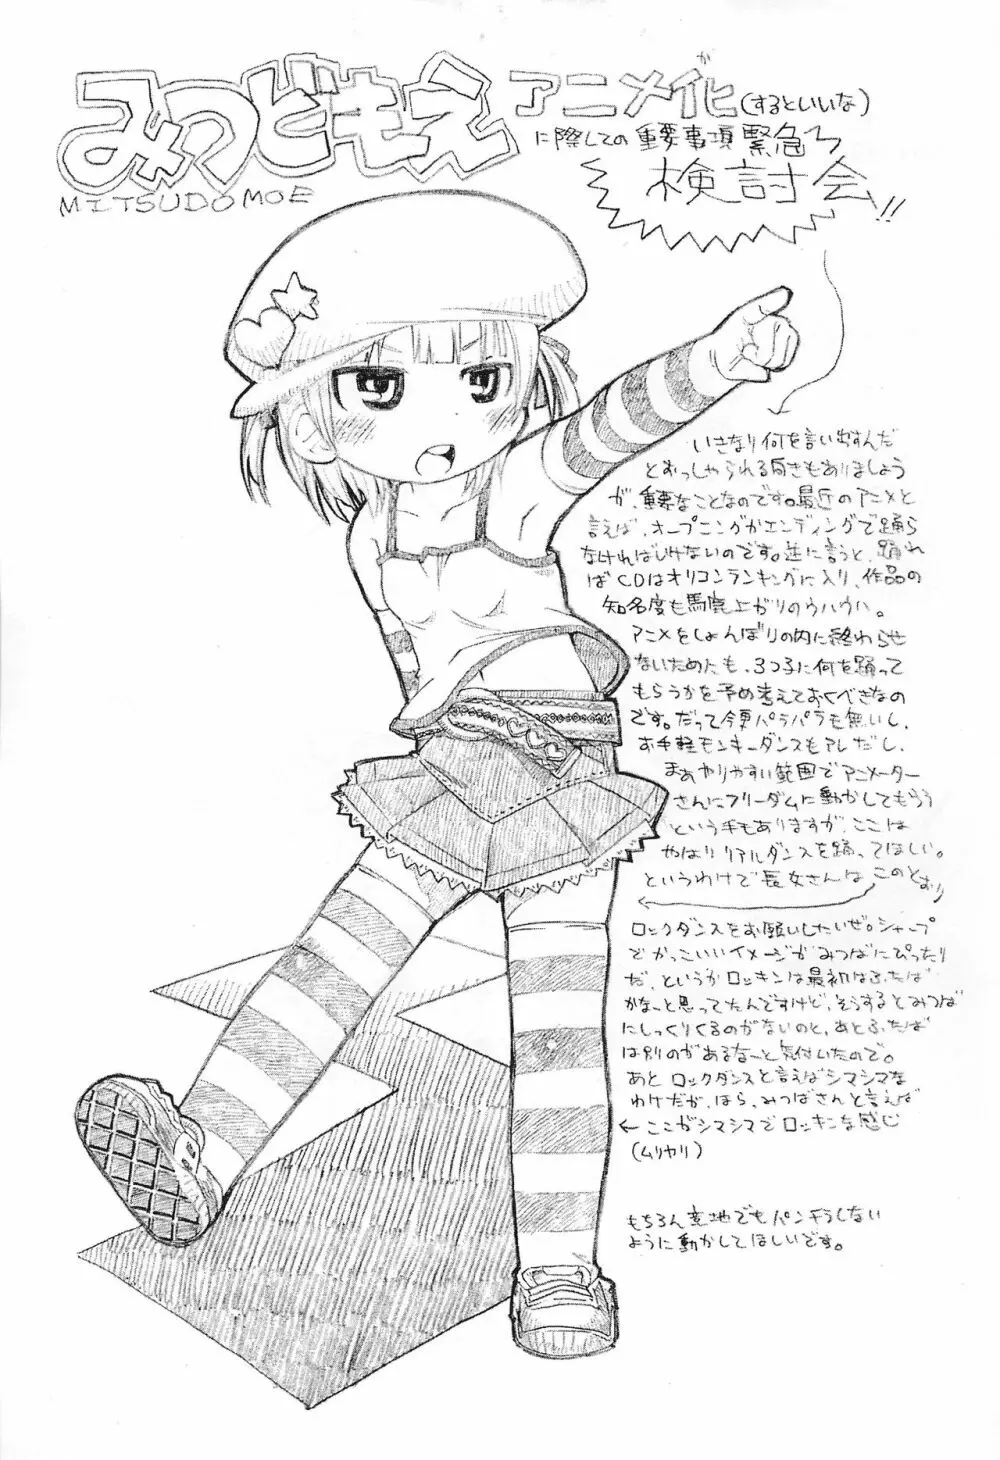 みつどもえ アニメ化(するといいな)
が
MITSUDOMOE
に際しての重要事項緊急
検討会!!
いきなり何を言い出すんだ
とおっしゃられる向きもありましょう
が、重要なことなのです。最近のアニメと
言えば、オープニングかエンディングで踊ら
なければいけないのです。逆に言うと、踊れ
ばCDはオリコンランキングに入り、作品の
知名度も馬鹿上がりのウハウハ。
アニメをしょんぼりの内に終わらせ
ないためにも、3つ子に何を踊って
もらうかを予め考えておくべきなの
です。だって今更パラパラも無いし、
お手軽モンキーダンスもアレだし、
まぁやりやすい範囲でアニメーター
さんにフリーダムに動かしてもらう
という手もありますが、ここは
やはりリアルダンスを踊ってほしい。
というわけで長女さんは このとおり
ロックダンスをお願いしたいぜ。シャープ
でかっこいいイメージがみつばにぴったり
だ、というかロッキンは最初はふたば
かなーっと思ってたんですけど、そうするとみつば
にしっくりくるのがないのと、あとふたば
は別のがあるなーっと気付いたので。
あと ロックダンスと言えばシマシマな
わけだが、ほら、みつばさんと言えば
←ここがシマシマでロッキンな感じ
(ムリヤリ)
もちろん意地でもパンチラしない
ように動かしてほしいです。